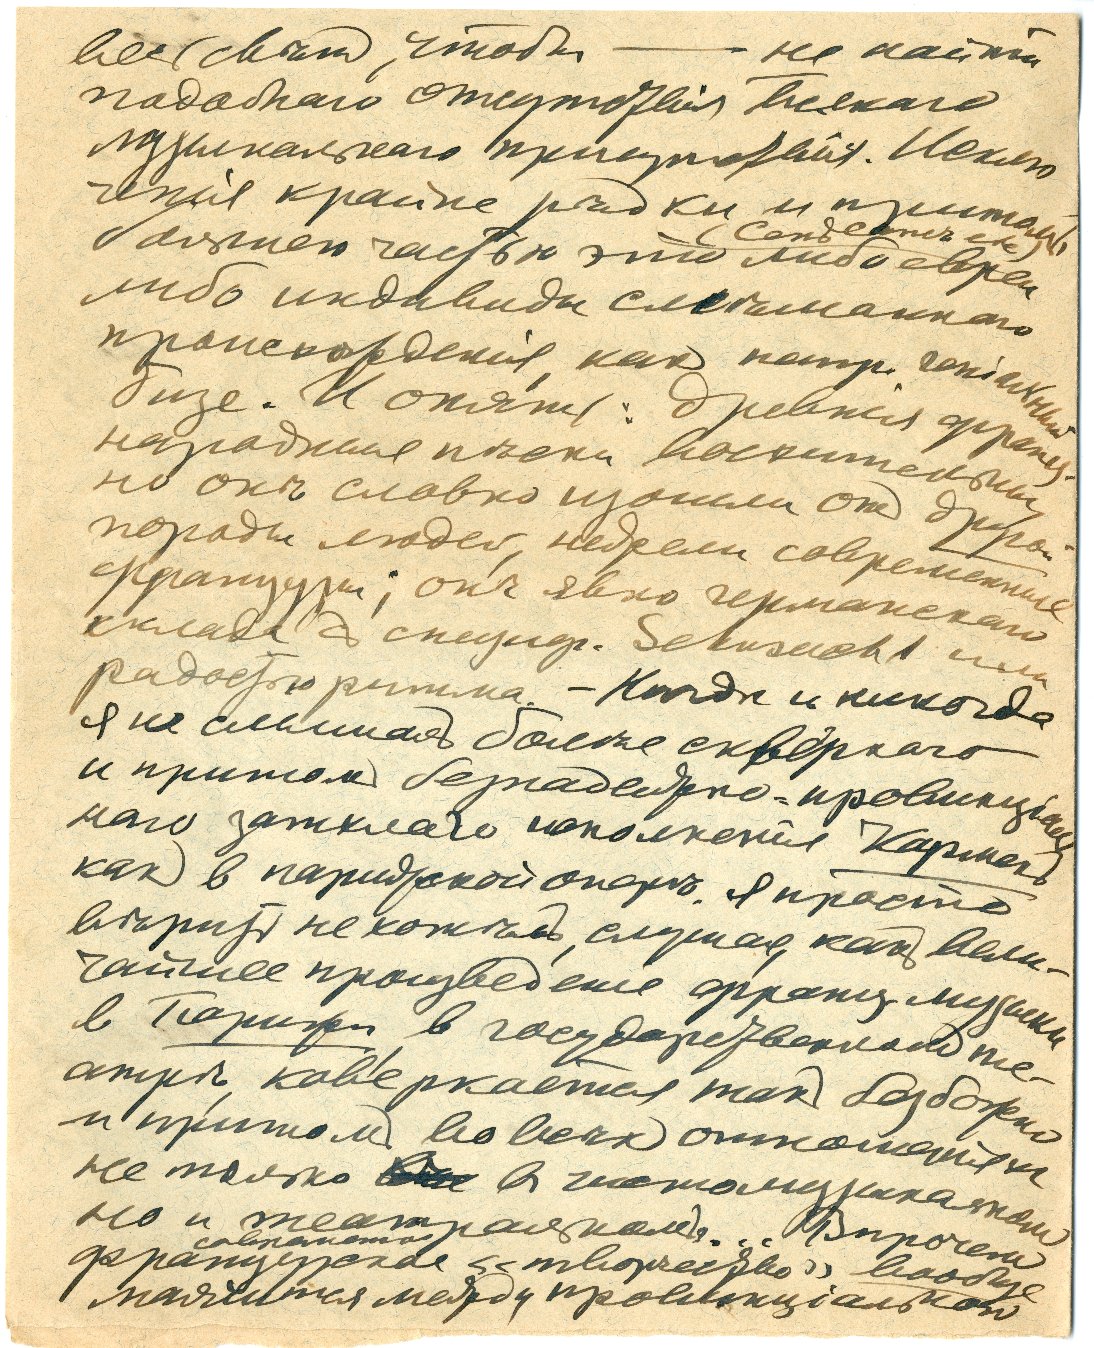 весь свѣтъ, чтобы — не найти
подобнаго отсутствія всякаго
музыкальнаго присутствія. Исклю
ченія крайне рѣдки и притомъ
(Сенъ Сансъ
большею частью это либо евреи
либо индивиды смѣшаннаго
происхожденія, как напр. геніальный
Бизе. И опять: древнія франц.
народныя пѣсни восхитительны
но онѣ словно изошли от другой
породы людей, нежели современные
французы; онѣ явно германскаго
склада съ специф. Sehnsucht или
радостью ритма. — Нигдѣ и никогда
я не слышалъ болѣе сквернаго
и притом безнадежно-провинціаль
наго затхлаго исполненія Карменъ
как в парижской оперѣ. Я просто
вѣрить не хотѣлъ, слушая, какъ вели-
чайшее произведение франц. музыки
в Парижѣ, в государственном те-
атрѣ, коверкается такъ безбожно
и притомъ во всѣхъ отношеніях
не только в чистомузыкальном
но и театральномъ... Впрочем
современное
французское «творчество» вообще
мечется между провинціальной